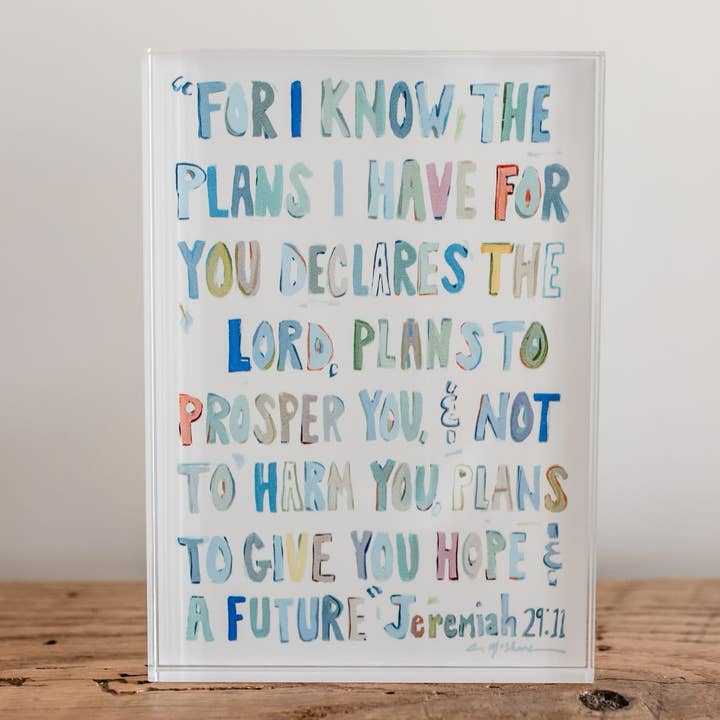 “FOR I KNOW, THE
PLANS I HAVE FOR
YOU DECLARES THE
LORD, PLANS TO
PROSPER YOU, & NOT
TO HARM YOU, PLANS
TO GIVE YOU HOPE &
A FUTURE” Jeremiah 29:11